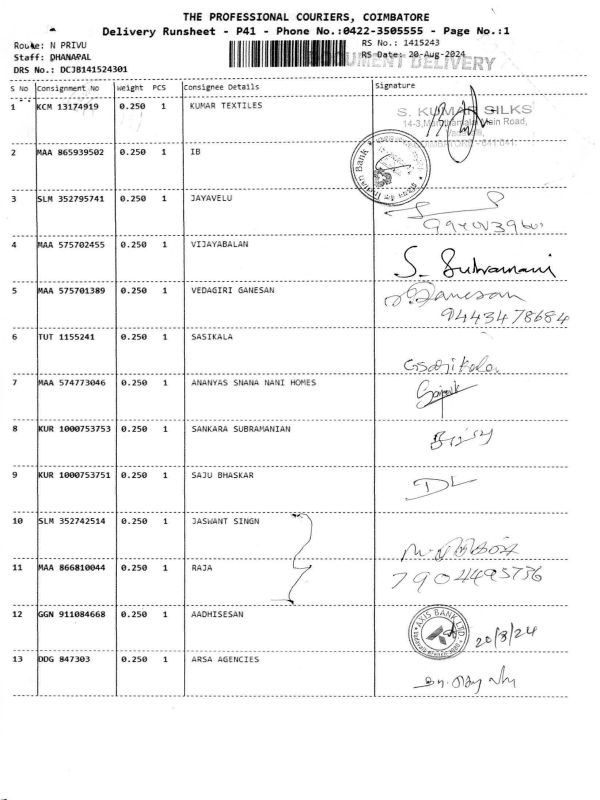 THE PROFESSIONAL COURIERS, COIMBATORE
Delivery Runsheet - P41 - Phone No.:0422-3505555 - Page No.:1
Route: N PRIVU
RS No.: 1415243
Staff: DHANAPAL
RS Date: 20-Aug-2024
DOCUMENT DELIVERY
DRS No.: DCJB141524301
S No Consignment No Weight PCS Consignee Details Signature
1 KCM 13174919 0.250 1 KUMAR TEXTILES
S. KUMAR SILKS
Main Road,
2 MAA 865939502 0.250 1 IB
Indian Bank
3 SLM 352795741 0.250 1 JAYAVELU
4 MAA 575702455 0.250 1 VIJAYABALAN
S. Subramani
5 MAA 575701389 0.250 1 VEDAGIRI GANESAN
Ganesan
9443478684
6 TUT 1155241 0.250 1 SASIKALA
G Sasikala
7 MAA 574773046 0.250 1 ANANYAS SNANA NANI HOMES
8 KUR 1000753753 0.250 1 SANKARA SUBRAMANIAN
9 KUR 1000753751 0.250 1 SAJU BHASKAR
DL
10 SLM 352742514 0.250 1 JASWANT SINGN
11 MAA 866810044 0.250 1 RAJA
7904495736
12 GGN 911084668 0.250 1 AADHISESAN
AXIS BANK LTD
20/8/24
13 DDG 847303 0.250 1 ARSA AGENCIES